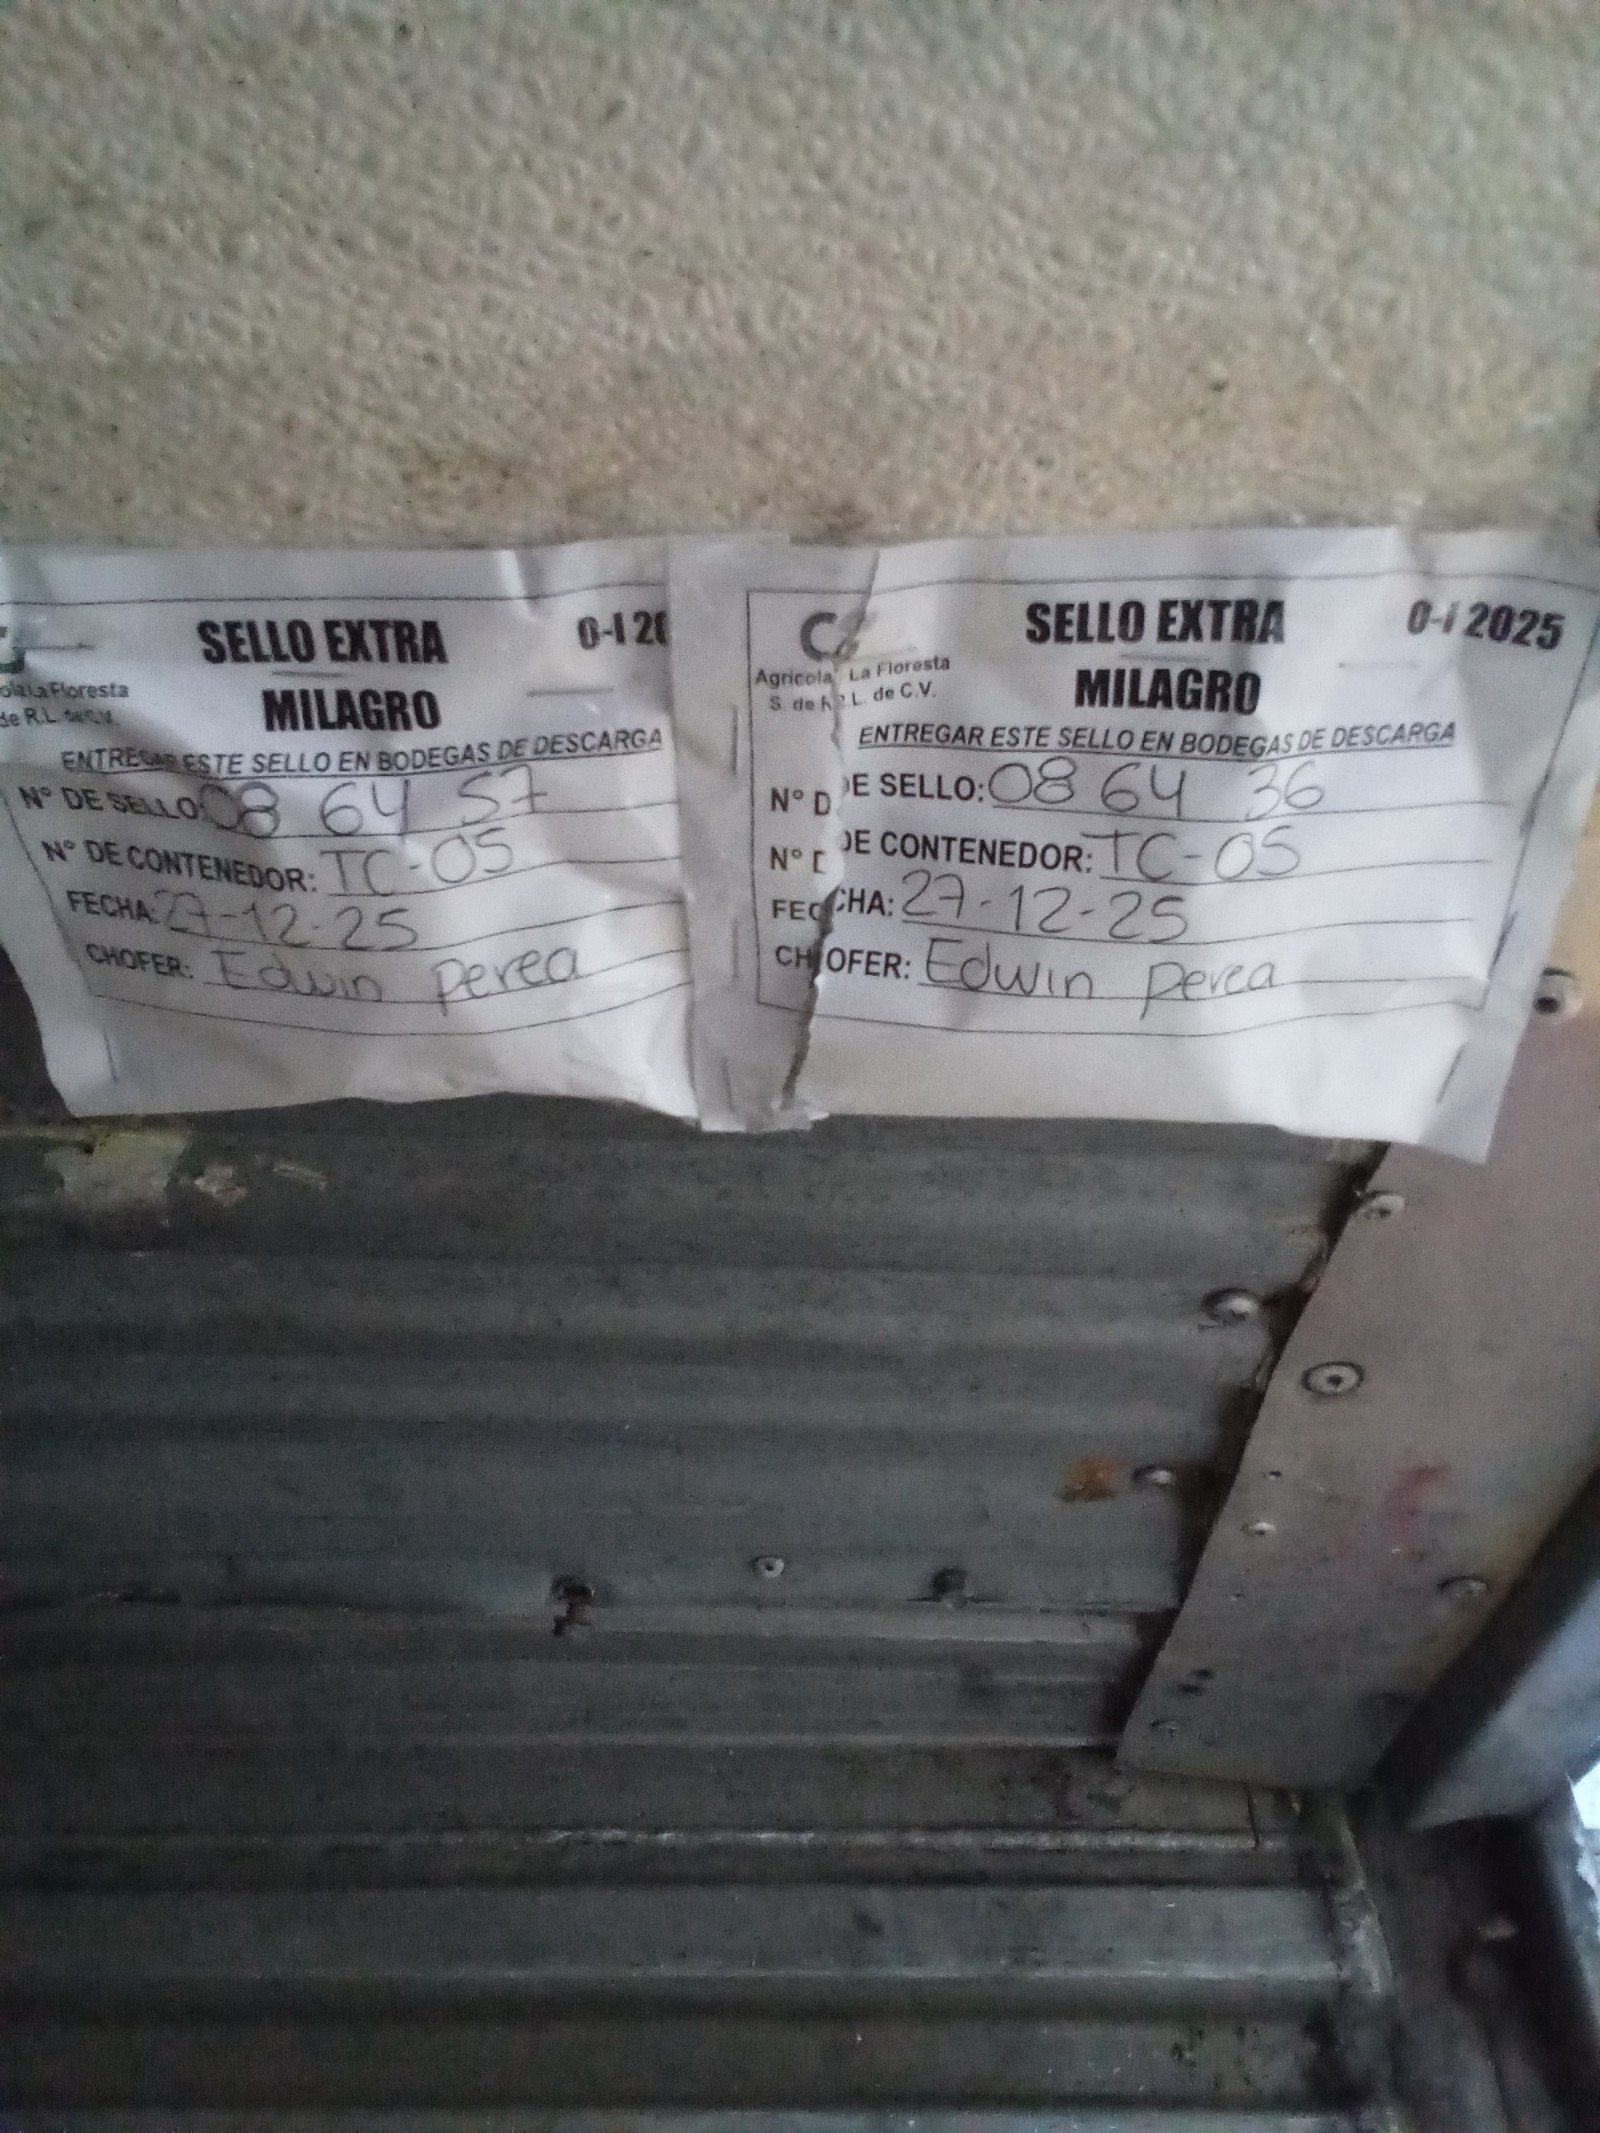 SELLO EXTRA
MILAGRO
O-I 20
ola La Floresta
de R.L. de C.V.
ENTREGAR ESTE SELLO EN BODEGAS DE DESCARGA
N° DE SELLO: 08 64 57
N° DE CONTENEDOR: TC-05
FECHA: 27-12-25
CHOFER: Edwin perea
SELLO EXTRA
MILAGRO
O-I 2025
Agricola La Floresta
S. de R.L. de C.V.
ENTREGAR ESTE SELLO EN BODEGAS DE DESCARGA
N° DE SELLO: 08 64 36
N° DE CONTENEDOR: TC-05
FECHA: 27-12-25
CHOFER: Edwin perea